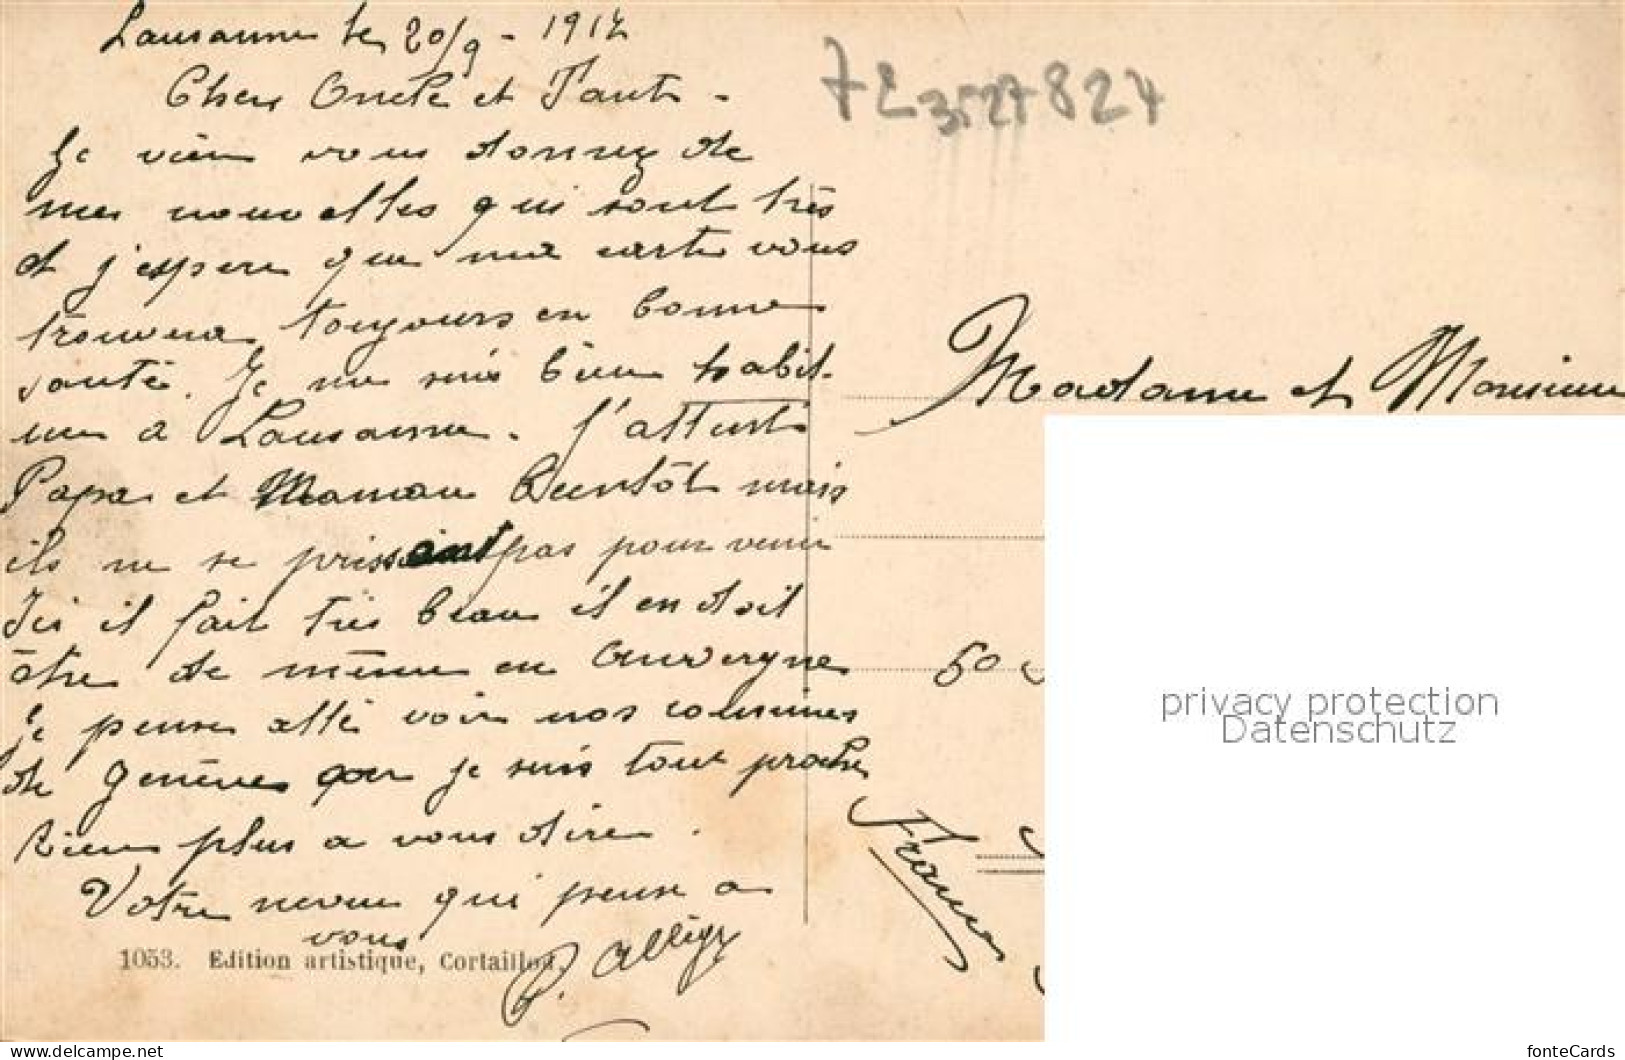 Lausanne le 20/9 - 1917
Cher Oncle et Tante -
Je vien vous donnez de
mes nouvelles qui sont très
et j'espere que ma carte vous
trouvera toujours en bonne
santé. Je me suis bien habit-
uer a Lausanne. J'attend
Papa et Maman Bientôt mais
ils ne se pas pour venir
Ici il fait très beau il en doit
être de même en Auvergne
Je pense allé voir nos cousines
de Genève que je suis tout proche
Rien plus a vous dire.
Votre neveu qui pense a
vous
1053. Edition artistique, Cortaillod.
72 3527 824
Madame et Monsieur
50
France
privacy protection
Datenschutz
https://www.ansichtskarten-center.de/
fonteCards